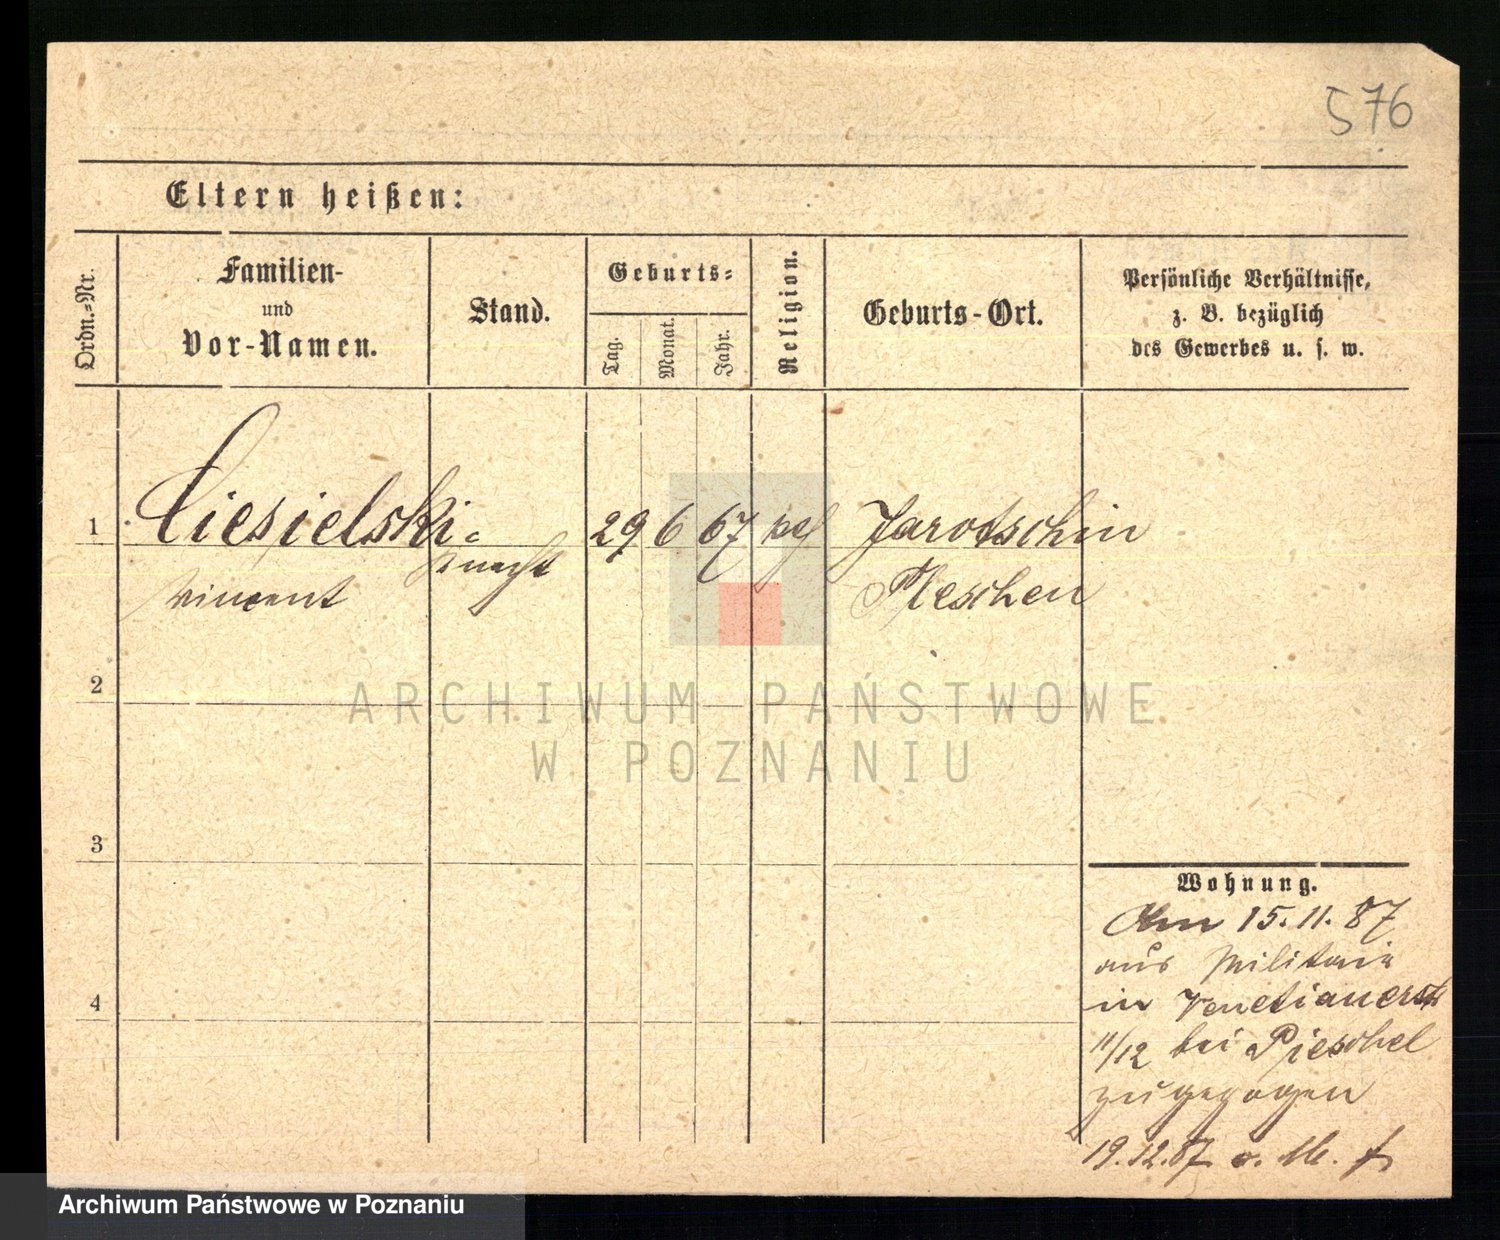 576
Eltern heißen:
Ordn.-Nr.
Familien-
und
Vor-Namen.
Stand.
Geburts-
Tag.
Monat.
Jahr.
Religion.
Geburts-Ort.
Persönliche Verhältnisse,
z. B. bezüglich
des Gewerbes u. s. w.
1 Ciesielski 29 6 67 Jarotschin
Vincent Knecht Pleschen
2
ARCHIWUM PAŃSTWOWE
W POZNANIU
3
Wohnung.
Am 15.11.87
aus Militair
in Venetianerstr
11/12 bei Pieschel
zugezogen
4
19.12.87 v. M.
Archiwum Państwowe w Poznaniu